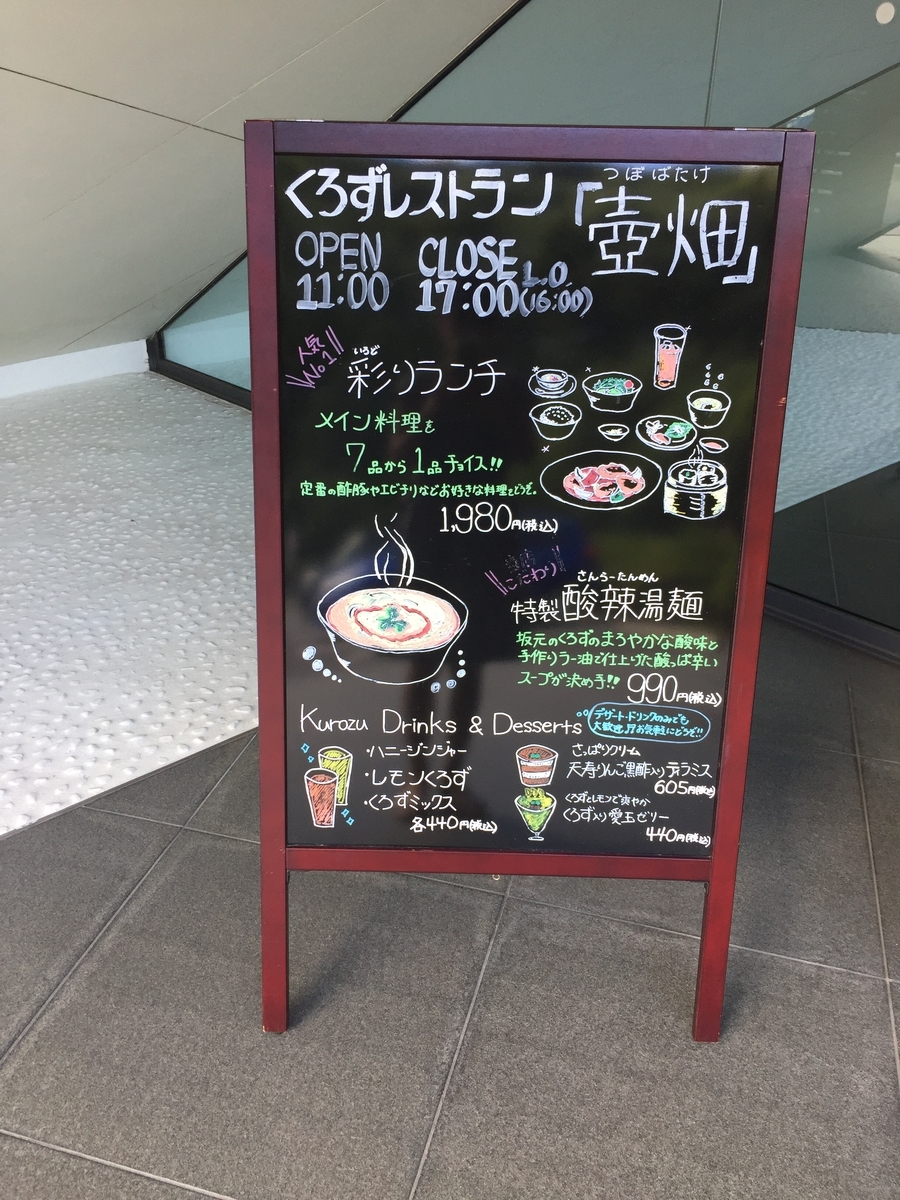 くろずレストラン「壺畑」
つぼばたけ
OPEN 11:00
CLOSE 17:00 L.O (16:00)
人気No.1
いろど
彩りランチ
メイン料理を
7品から1品チョイス!!
定番の酢豚やエビチリなどお好きな料理をどうぞ。
1,980円(税込)
こだわり
さんらーたんめん
特製酸辣湯麺
坂元のくろずのまろやかな酸味と
手作りラー油で仕上げた酸っぱ辛い
スープが決め手!!
990円(税込)
Kurozu Drinks & Desserts
デザート・ドリンクのみでも
大歓迎♬お気軽にどうぞ!!
・ハニージンジャー
・レモンくろず
・くろずミックス
各440円(税込)
さっぱりクリーム
天寿りんご黒酢入りテラミス
605円(税込)
くろずとレモンで爽やか
くろず入り愛玉ゼリー
440円(税込)